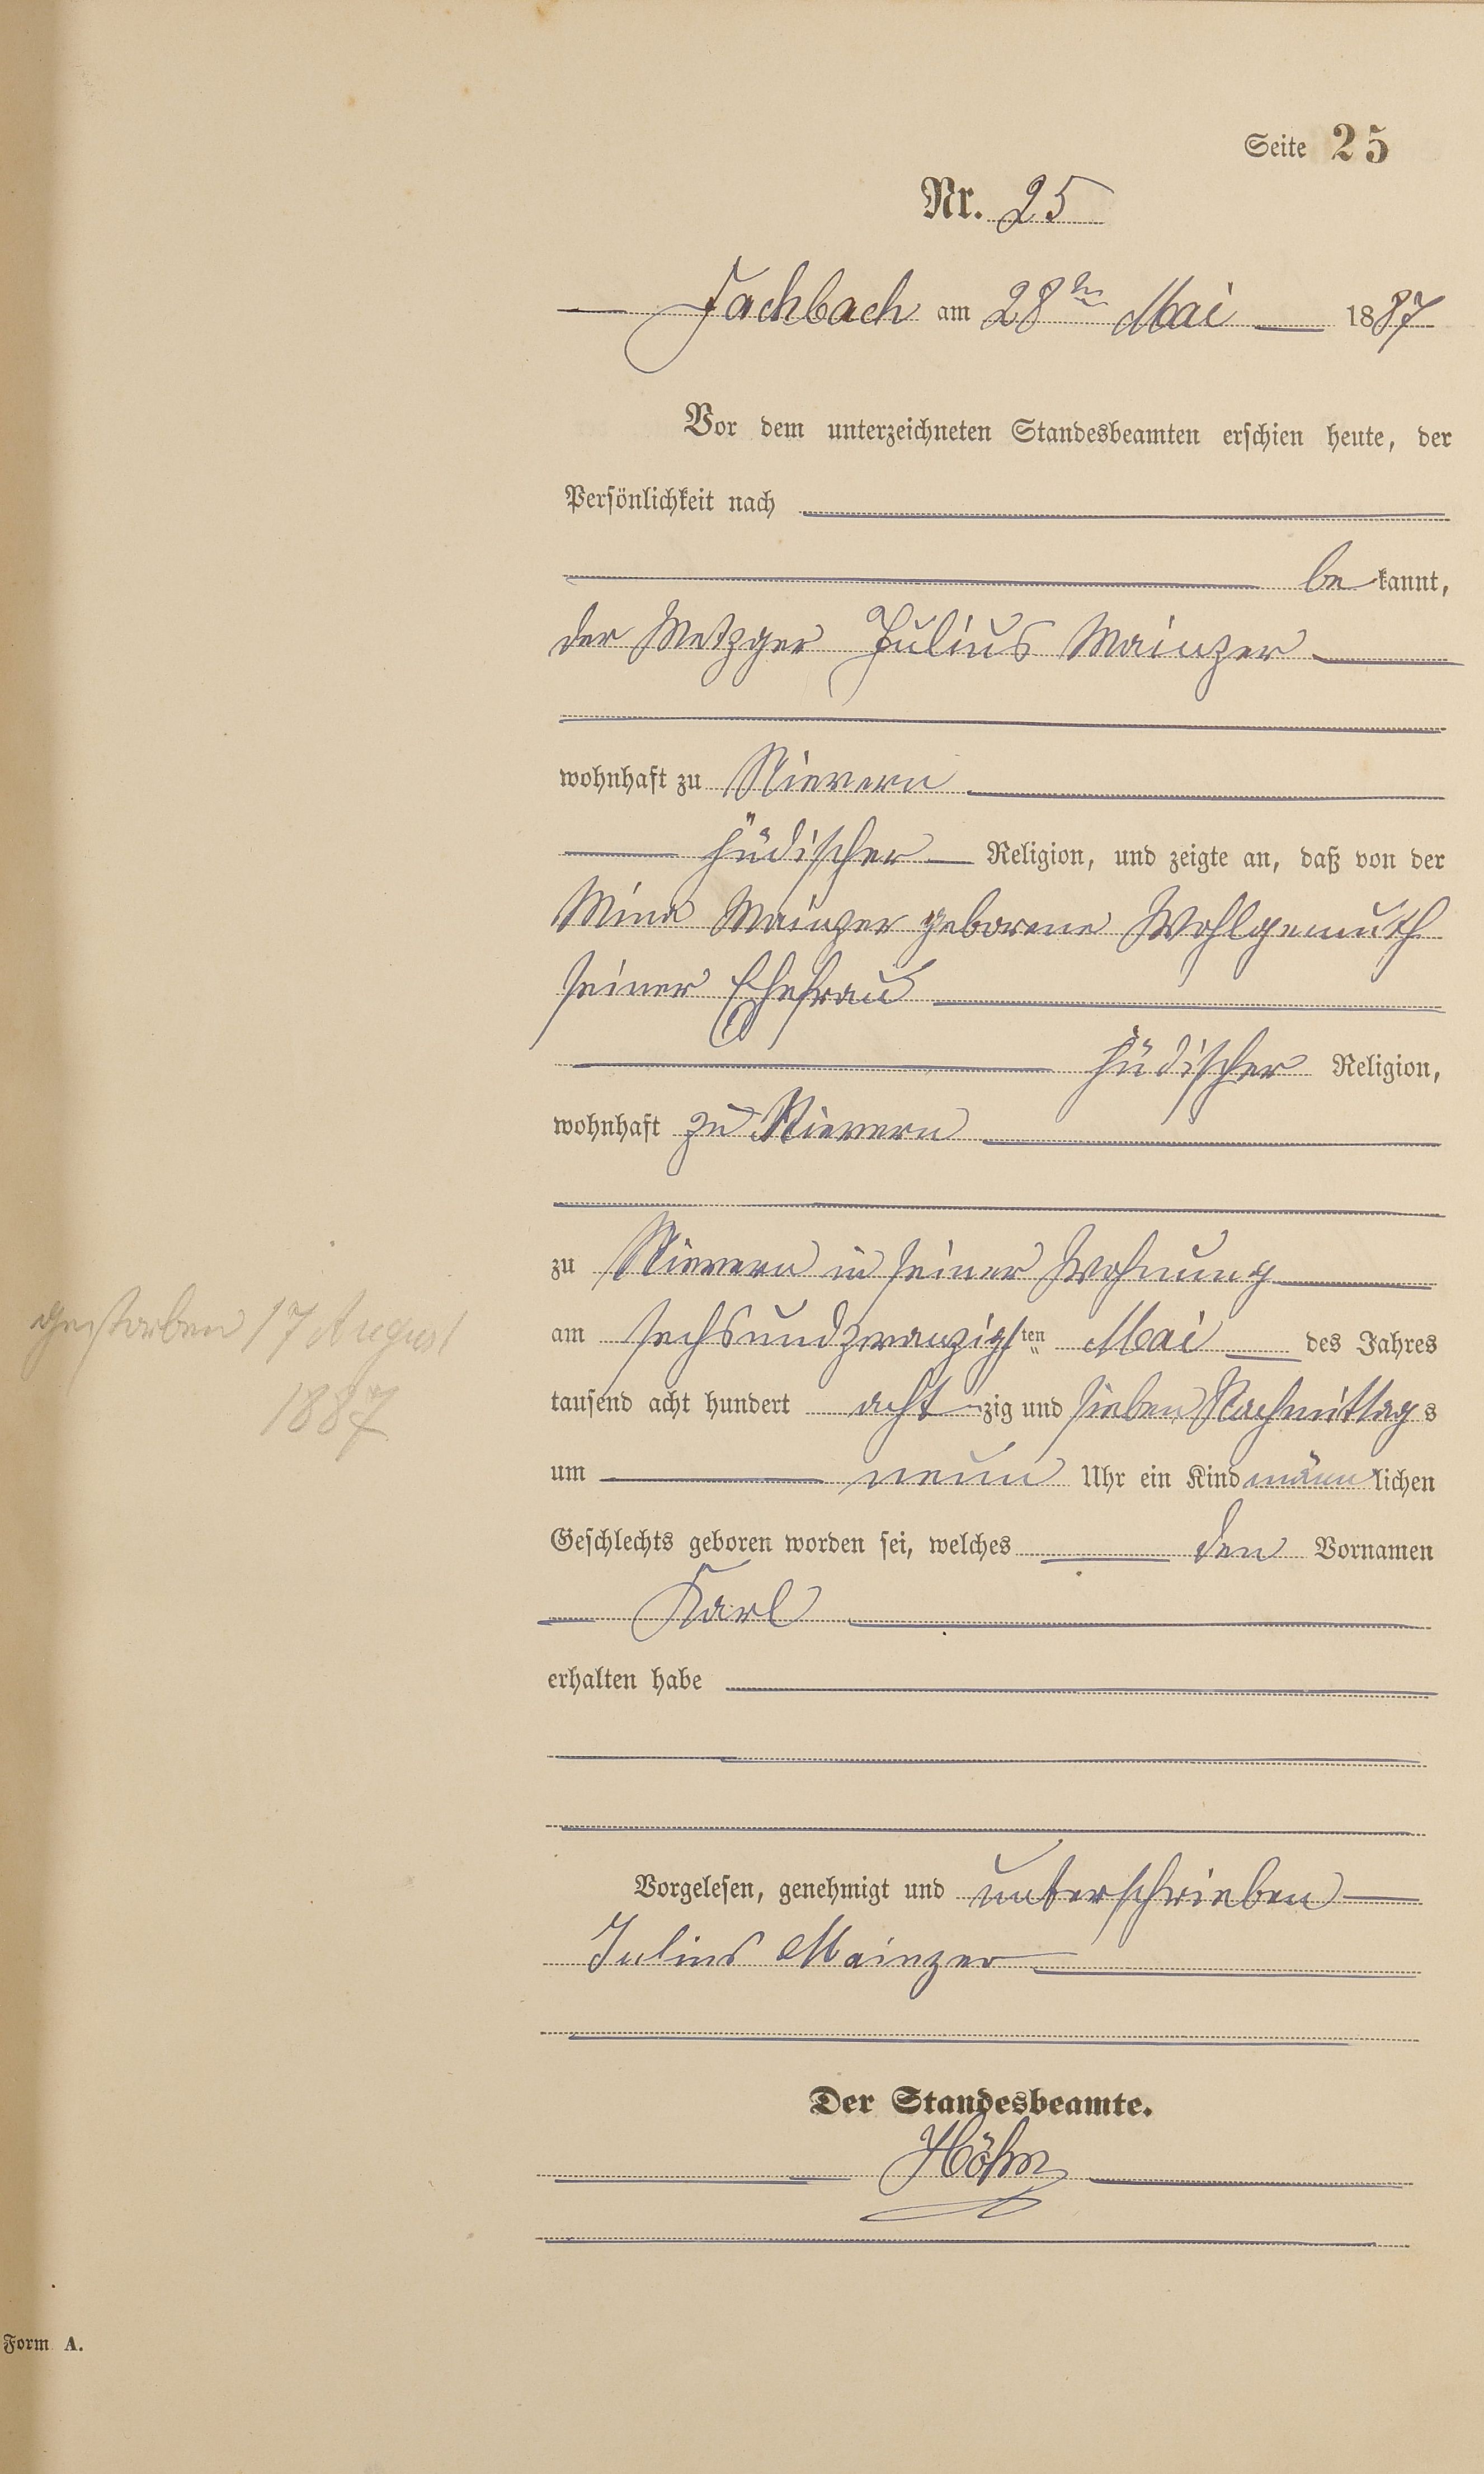 Seite 25
Nr. 25
Fachbach am 28ten Mai 1887
Vor dem unterzeichneten Standesbeamten erschien heute, der
Persönlichkeit nach
be kannt,
der Metzger Julius Mainzer
wohnhaft zu Nievern
jüdischer Religion, und zeigte an, daß von der
Mina Mainzer geborene Wohlgemuth
seiner Ehefrau
jüdischer Religion,
wohnhaft zu Nievern
zu Nievern in seiner Wohnung
am sechsundzwanzigsten Mai des Jahres
gestorben 17 August
1887
tausend acht hundert acht zig und sieben Nachmittags
um neun Uhr ein Kind männlichen
Geschlechts geboren worden sei, welches den Vornamen
Karl
erhalten habe
Vorgelesen, genehmigt und unterschrieben
Julius Mainzer
Der Standesbeamte.
Höhn
Form A.